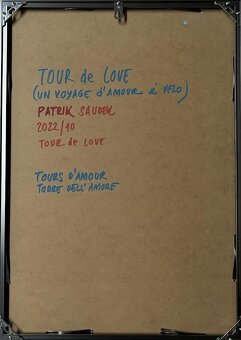 TOUR de LOVE
(UN VOYAGE D'AMOUR à VELO)
PATRIK SAUDEK
2022/10
TOUR de LOVE
TOURS D'AMOUR
TORRE DELL'AMORE